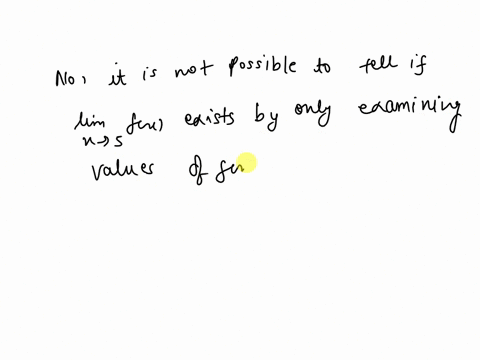 No, it is not possible to tell if
lim f(x) exists by only examining
x→5
values of f(x